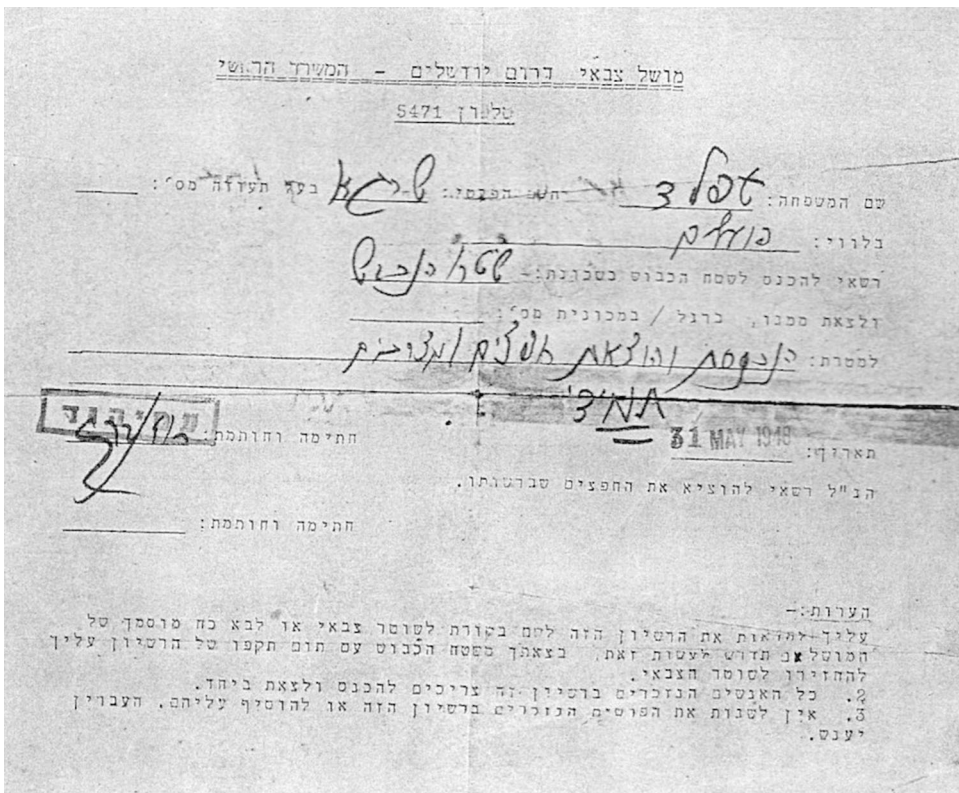 מושל צבאי דרום ירושלים - המשרד הראשי
טלפון 5471
שם המשפחה: אפלד השם הפרטי: שרגא בעל תעודה מס': ____
בלווי: פועלים
רשאי להכנס לשטח הכבוש בשכונת:- שטח הכבוש
ולצאת ממנו, ברגל / במכונית מס': ____
למטרת: הכנסת והוצאת חפצים ומצרכים
תמידי
תאריך: 31 MAY 1948 חתימה וחותמת:
הנ"ל רשאי להוציא את החפצים שברשותו.
חתימה וחותמת: ____
הערות:-
עליך להראות את הרשיון הזה לשם בקורת לשוטר צבאי או לבא כח מוסמך של
המושל אם תדרש לעשות זאת, בצאתך משטח הכבוש עם תום תקפו של הרשיון עליך
להחזירו לשוטר הצבאי.
2. כל האנשים הנזכרים ברשיון זה צריכים להכנס ולצאת ביחד.
3. אין לשנות את הפרטים הנזכרים ברשיון הזה או להוסיף עליהם. העבריין
יענש.